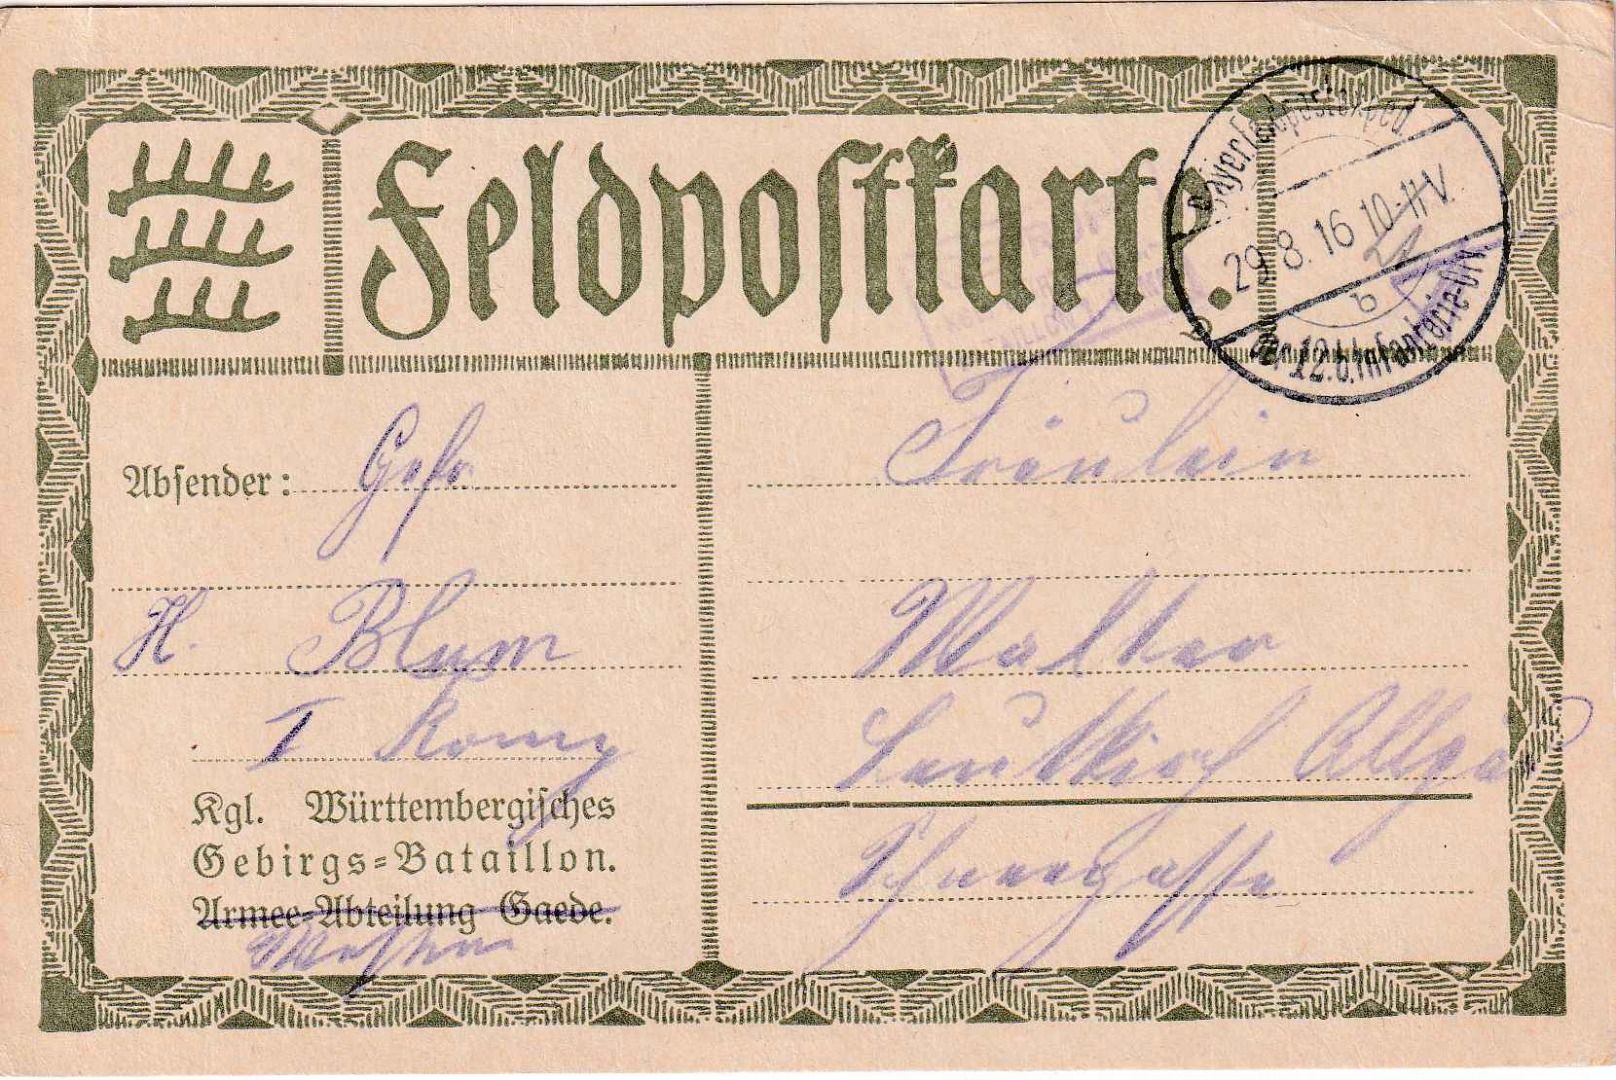 Feldpostkarte.
Bayer. Feldpostexped.
29.8.16 10-11 V.
b
der 12. b. Infanterie-Div.
Absender: Gefr.
H. Blum
I Komp
Kgl. Württembergisches
Gebirgs-Bataillon.
Armee-Abteilung Gaede.
Westen
Fräulein
Walter
Leutkirch Allgäu
Schneegasse